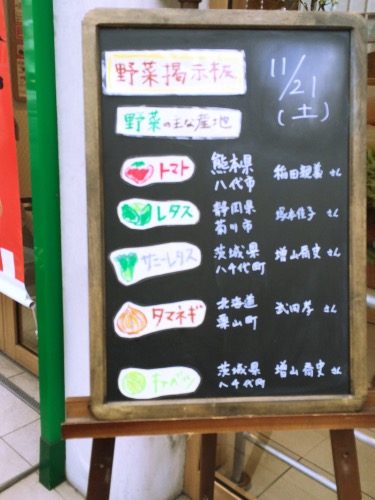 野菜掲示板
11/21
(土)
野菜の主な産地
トマト 熊本県 八代市 稲田親美さん
レタス 静岡県 菊川市 塚本佳子さん
サニーレタス 茨城県 八千代町 増山喬史さん
タマネギ 北海道 栗山町 武田孝さん
キャベツ 茨城県 八千代町 増山喬史さん